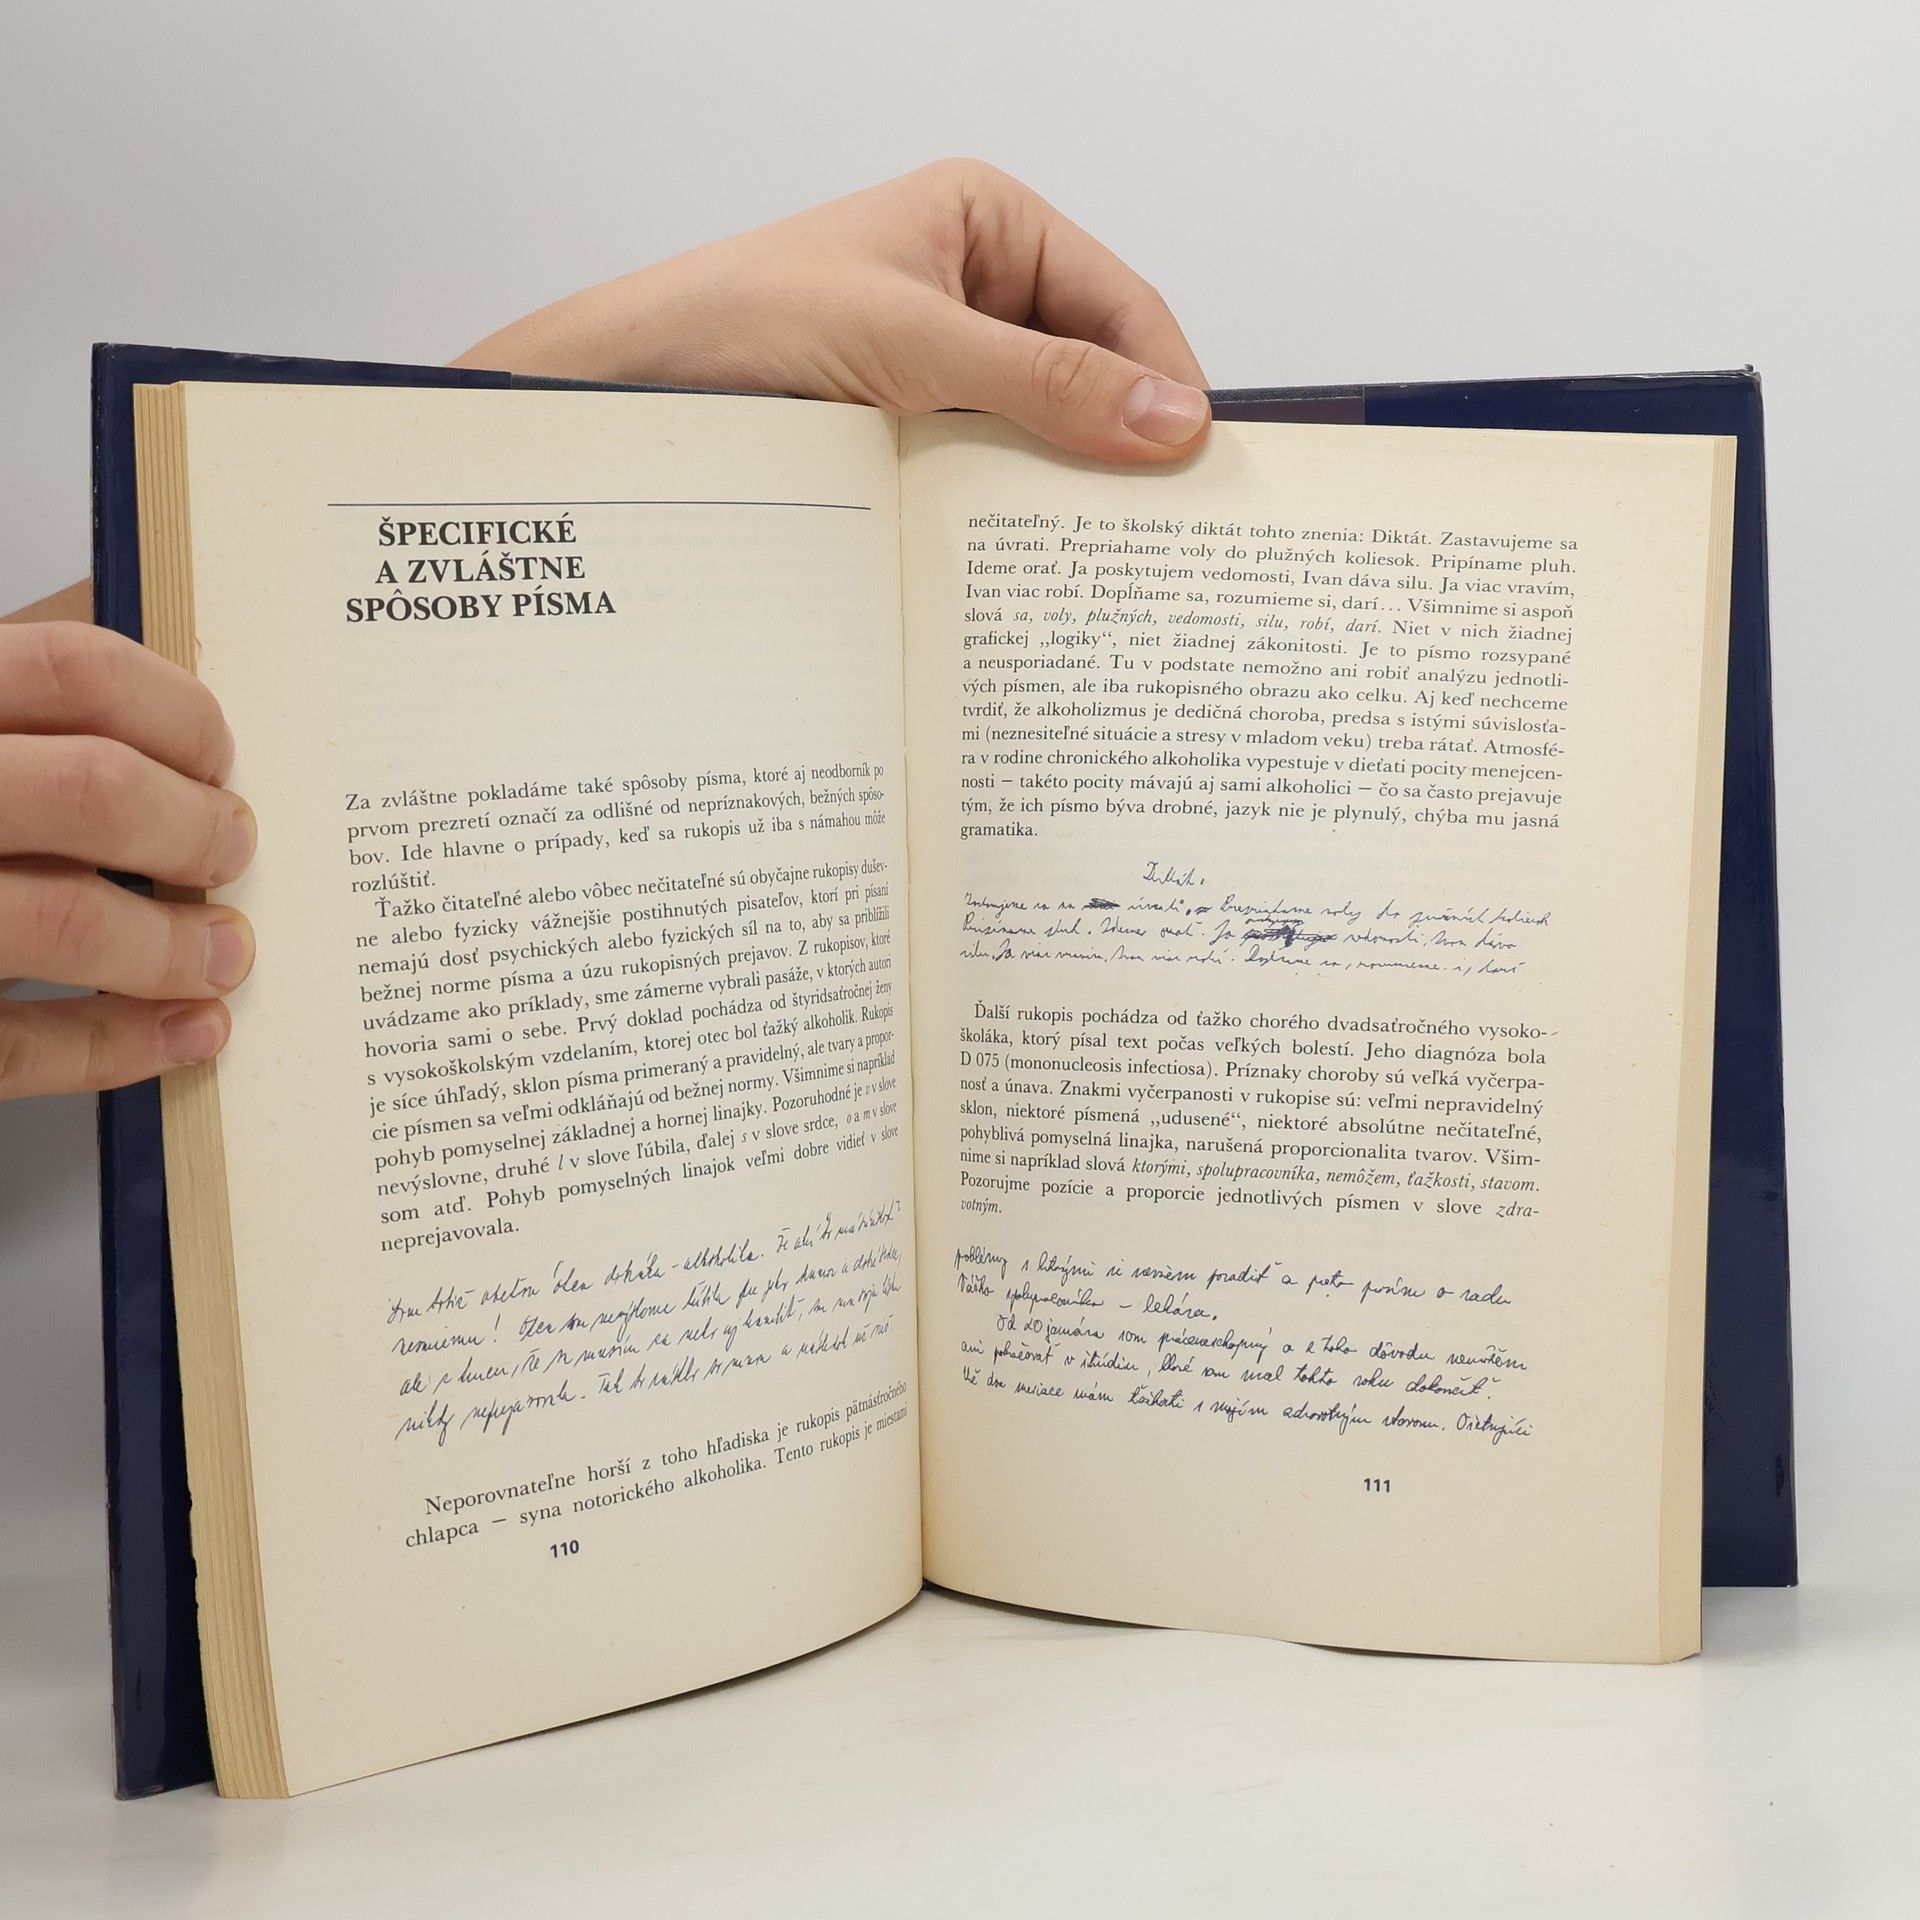 ŠPECIFICKÉ
A ZVLÁŠTNE
SPÔSOBY PÍSMA
Za zvláštne pokladáme také spôsoby písma, ktoré aj neodborník po
prvom prezretí označí za odlišné od nepríznakových, bežných spôso-
bov. Ide hlavne o prípady, keď sa rukopis už iba s námahou môže
rozlúštiť.
Ťažko čitateľné alebo vôbec nečitateľné sú obyčajne rukopisy dušev-
ne alebo fyzicky vážnejšie postihnutých pisateľov, ktorí pri písaní
nemajú dosť psychických alebo fyzických síl na to, aby sa priblížili
bežnej norme písma a úzu rukopisných prejavov. Z rukopisov, ktoré
uvádzame ako príklady, sme zámerne vybrali pasáže, v ktorých autori
hovoria sami o sebe. Prvý doklad pochádza od štyridsaťročnej ženy
s vysokoškolským vzdelaním, ktorej otec bol ťažký alkoholik. Rukopis
je síce úhľadý, sklon písma primeraný a pravidelný, ale tvary a propor-
cie písmen sa veľmi odkláňajú od bežnej normy. Všimnime si napríklad
pohyb pomyselnej základnej a hornej linajky. Pozoruhodné je v v slove
nevýslovne, druhé l v slove ľúbila, ďalej s v slove srdce, o a m v slove
som atď. Pohyb pomyselných linajok veľmi dobre vidieť v slove
neprejavovala.
otca - alkoholika.
nesmiernu! Otca som nevýslovne ľúbila pre jeho humor a dobré srdce,
ale s tým, že sa musím za neho aj hanbiť, som svoju lásku
nikdy neprejavovala.
Neporovnateľne horší z toho hľadiska je rukopis pätnásťročného
chlapca – syna notorického alkoholika. Tento rukopis je miestami
110
nečitateľný. Je to školský diktát tohto znenia: Diktát. Zastavujeme sa
na úvrati. Prepriahame voly do plužných koliesok. Pripíname pluh.
Ideme orať. Ja poskytujem vedomosti, Ivan dáva silu. Ja viac vravím,
Ivan viac robí. Dopĺňame sa, rozumieme si, darí... Všimnime si aspoň
slová sa, voly, plužných, vedomosti, silu, robí, darí. Niet v nich žiadnej
grafickej „logiky“, niet žiadnej zákonitosti. Je to písmo rozsypané
a neusporiadané. Tu v podstate nemožno ani robiť analýzu jednotli-
vých písmen, ale iba rukopisného obrazu ako celku. Aj keď nechceme
tvrdiť, že alkoholizmus je dedičná choroba, predsa s istými súvislosťa-
mi (neznesiteľné situácie a stresy v mladom veku) treba rátať. Atmosfé-
ra v rodine chronického alkoholika vypestuje v dieťati pocity menejcen-
nosti – takéto pocity mávajú aj sami alkoholici – čo sa často prejavuje
tým, že ich písmo býva drobné, jazyk nie je plynulý, chýba mu jasná
gramatika.
Diktát.
Zastavujeme sa na úvrati. Prepriahame voly do plužných koliesok
Pripíname pluh. Ideme orať. Ja vedomosti, Ivan dáva
silu. Ja viac vravím, Ivan viac robí. Dopĺňame sa, rozumieme si, darí
Ďalší rukopis pochádza od ťažko chorého dvadsaťročného vysoko-
školáka, ktorý písal text počas veľkých bolestí. Jeho diagnóza bola
D 075 (mononucleosis infectiosa). Príznaky choroby sú veľká vyčerpa-
nosť a únava. Znakmi vyčerpanosti v rukopise sú: veľmi nepravidelný
sklon, niektoré písmená „udusené“, niektoré absolútne nečitateľné,
pohyblivá pomyselná linajka, narušená proporcionalita tvarov. Všim-
nime si napríklad slová ktorými, spolupracovníka, nemôžem, ťažkosti, stavom.
Pozorujme pozície a proporcie jednotlivých písmen v slove zdra-
votným.
problémy s ktorými si neviem poradiť a preto prosím o radu
Vášho spolupracovníka – lekára.
Od 20 januára som práceneschopný a z toho dôvodu nemôžem
ani pokračovať v štúdiu, ktoré som mal tohto roku dokončiť.
Už dva mesiace mám ťažkosti s mojím zdravotným stavom. Ošetrujúci
111